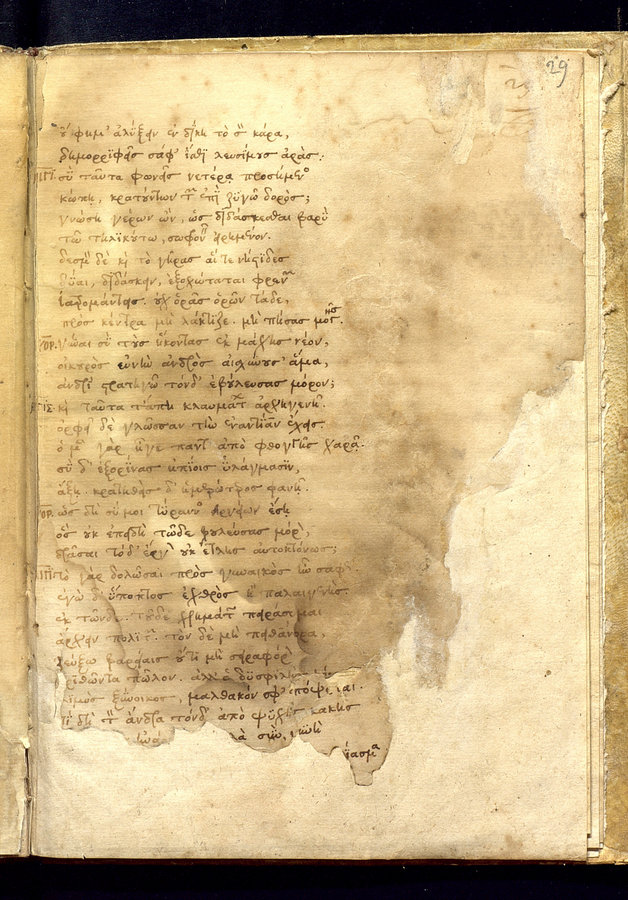 οὔ φημ' ἀλύξειν ἐν δίκῃ τὸ σὸν κάρα,
δημορριφεῖς σάφ' ἴσθι λευσίμους ἀράς.
σὺ ταῦτα φωνεῖς νερτέρᾳ προσήμενος
κώπῃ, κρατούντων τῶν ἐπὶ ζυγῷ δορός;
γνώσῃ γέρων ὢν, ὡς διδάσκεσθαι βαρὺ
τῷ τηλικούτῳ, σωφρονεῖν εἰρημένον.
δεσμὸς δὲ καὶ τὸ γῆρας αἵ τε νήστιδες
δύαι, διδάσκειν, ἐξοχώταται φρενῶν
ἰατρομάντεις. οὐχ ὁρᾷς ὁρῶν τάδε,
πρὸς κέντρα μὴ λάκτιζε. μὴ πήσας μογῇς.
ΧΟΡ. γύναι σὺ τοὺς ἥκοντας ἐκ μάχης νέον,
οἰκουρὸς εὐνὴν ἀνδρὸς αἰσχύνουσ' ἅμα,
ἀνδρὶ στρατηγῷ τόνδ' ἐβούλευσας μόρον;
καὶ ταῦτα τἄπη κλαυμάτων ἀρχηγενῆ.
ὀρφεῖ δὲ γλῶσσαν τὴν ἐναντίαν ἔχεις.
ὁ μὲν γὰρ ἦγε πάντ' ἀπὸ φθογγῆς χαρᾷ.
σὺ δ' ἐξορίνας νηπίοις ὑλάγμασιν,
ἄξῃ. κρατηθεὶς δ' ἡμερώτερος φανῇ.
ΧΟΡ. ὡς δὴ σύ μοι τύραννος ἀργείων ἔσῃ
ὃς οὐκ ἐπειδὴ τῷδε βουλεύσας μόρον,
δρᾶσαι τόδ' ἔργον οὐκ ἔτλης αὐτοκτόνως;
τὸ γὰρ δολῶσαι πρὸς γυναικὸς ἦν σαφῶς
ἐγὼ δ' ὕποπτος ἐχθρὸς ἦ παλαιγενής.
ἐκ τῶνδε τοῦδε χρημάτων πειράσομαι
ἄρχειν πολιτῶν. τὸν δὲ μὴ πειθάνορα,
ζεύξω βαρείαις οὔτι μὴ σειραφόρον
κριθῶντα πῶλον. ἀλλ' ὁ
λιμὸς ξύνοικος, μαλθακόν σφ' ἐπόψεται.
τί δὴ τὸν ἄνδρα τόνδ' ἀπὸ ψυχῆς κακῆς
29